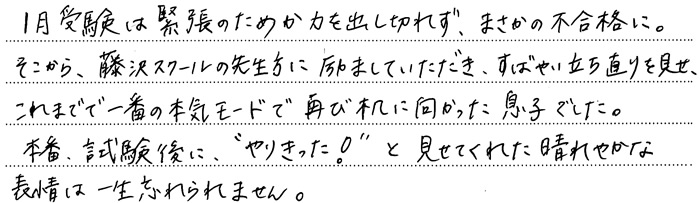 1月受験は緊張のためか力を出し切れず、まさかの不合格に。
そこから、藤沢スクールの先生方に励ましていただき、すばやい立ち直りを見せ、
これまでで一番の本気モードで再び机に向かった息子でした。
本番、試験後に、“やりきった!”と見せてくれた晴れやかな
表情は一生忘れられません。